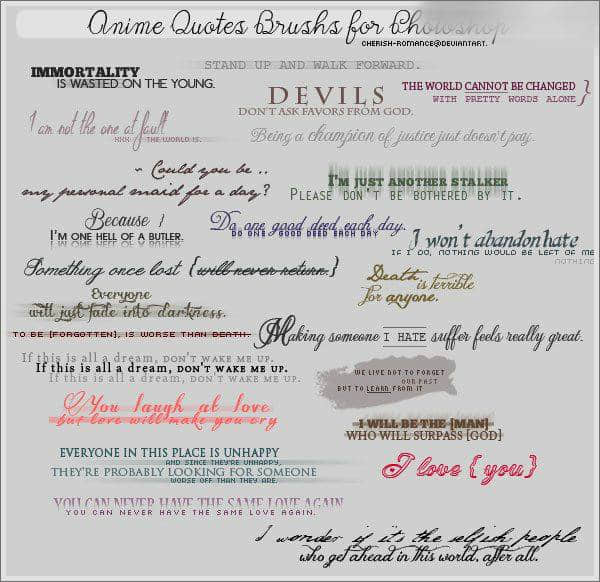 Anime Quotes Brushs for Photoshop
CHERISH-ROMANCE@DEVIANTART.
STAND UP AND WALK FORWARD.
IMMORTALITY
IS WASTED ON THE YOUNG.
DEVILS
DON'T ASK FAVORS FROM GOD.
THE WORLD CANNOT BE CHANGED
WITH PRETTY WORDS ALONE }
I am not the one at fault
XXX THE WORLD IS.
Being a champion of justice just doesn't pay.
~ Could you be ..
my personal maid for a day?
I'M JUST ANOTHER STALKER
PLEASE DON'T BE BOTHERED BY IT.
Because I
I'M ONE HELL OF A BUTLER.
Do one good deed each day.
DO ONE GOOD DEED EACH DAY
I won't abandon hate
IF I DO, NOTHING WOULD BE LEFT OF ME
NOTHING
Something once lost {will never return.}
Death is terrible
for anyone.
Everyone
will just fade into darkness.
TO BE [FORGOTTEN], IS WORSE THAN DEATH.
Making someone I HATE suffer feels really great.
If this is all a dream, DON'T WAKE ME UP.
If this is all a dream, DON'T WAKE ME UP.
If this is all a dream, DON'T WAKE ME UP.
WE LIVE NOT TO FORGET
OUR PAST
BUT TO LEARN FROM IT
You laugh at love
but love will make you cry
I WILL BE THE [MAN]
WHO WILL SURPASS [GOD]
EVERYONE IN THIS PLACE IS UNHAPPY
AND SINCE THEY'RE UNHAPPY,
THEY'RE PROBABLY LOOKING FOR SOMEONE
WORSE OFF THAN THEY ARE.
I love { you }
YOU CAN NEVER HAVE THE SAME LOVE AGAIN
YOU CAN NEVER HAVE THE SAME LOVE AGAIN.
I wonder if it's the selfish people
who get ahead in this world, after all.